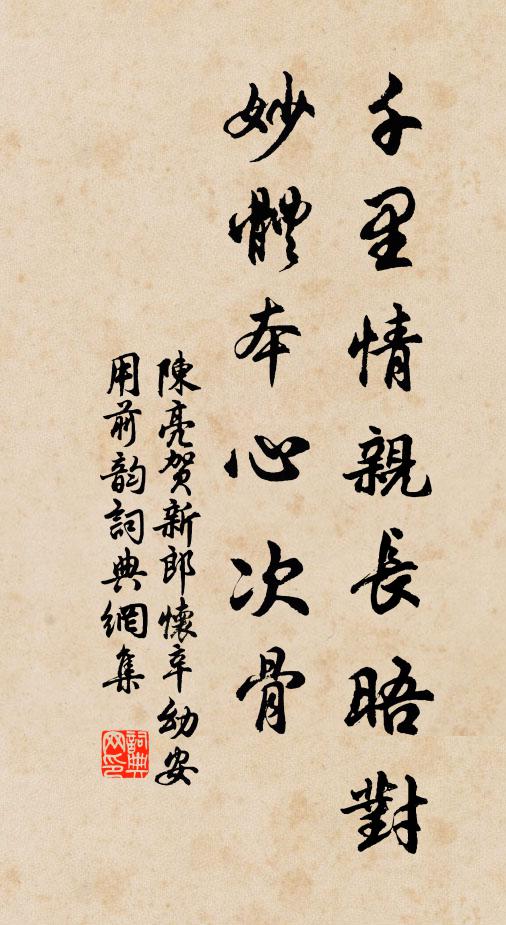 千里情親長晤對
妙體本心次骨
陳亮賀新郎懷辛幼安
用前韵詞典網集
詞典網印